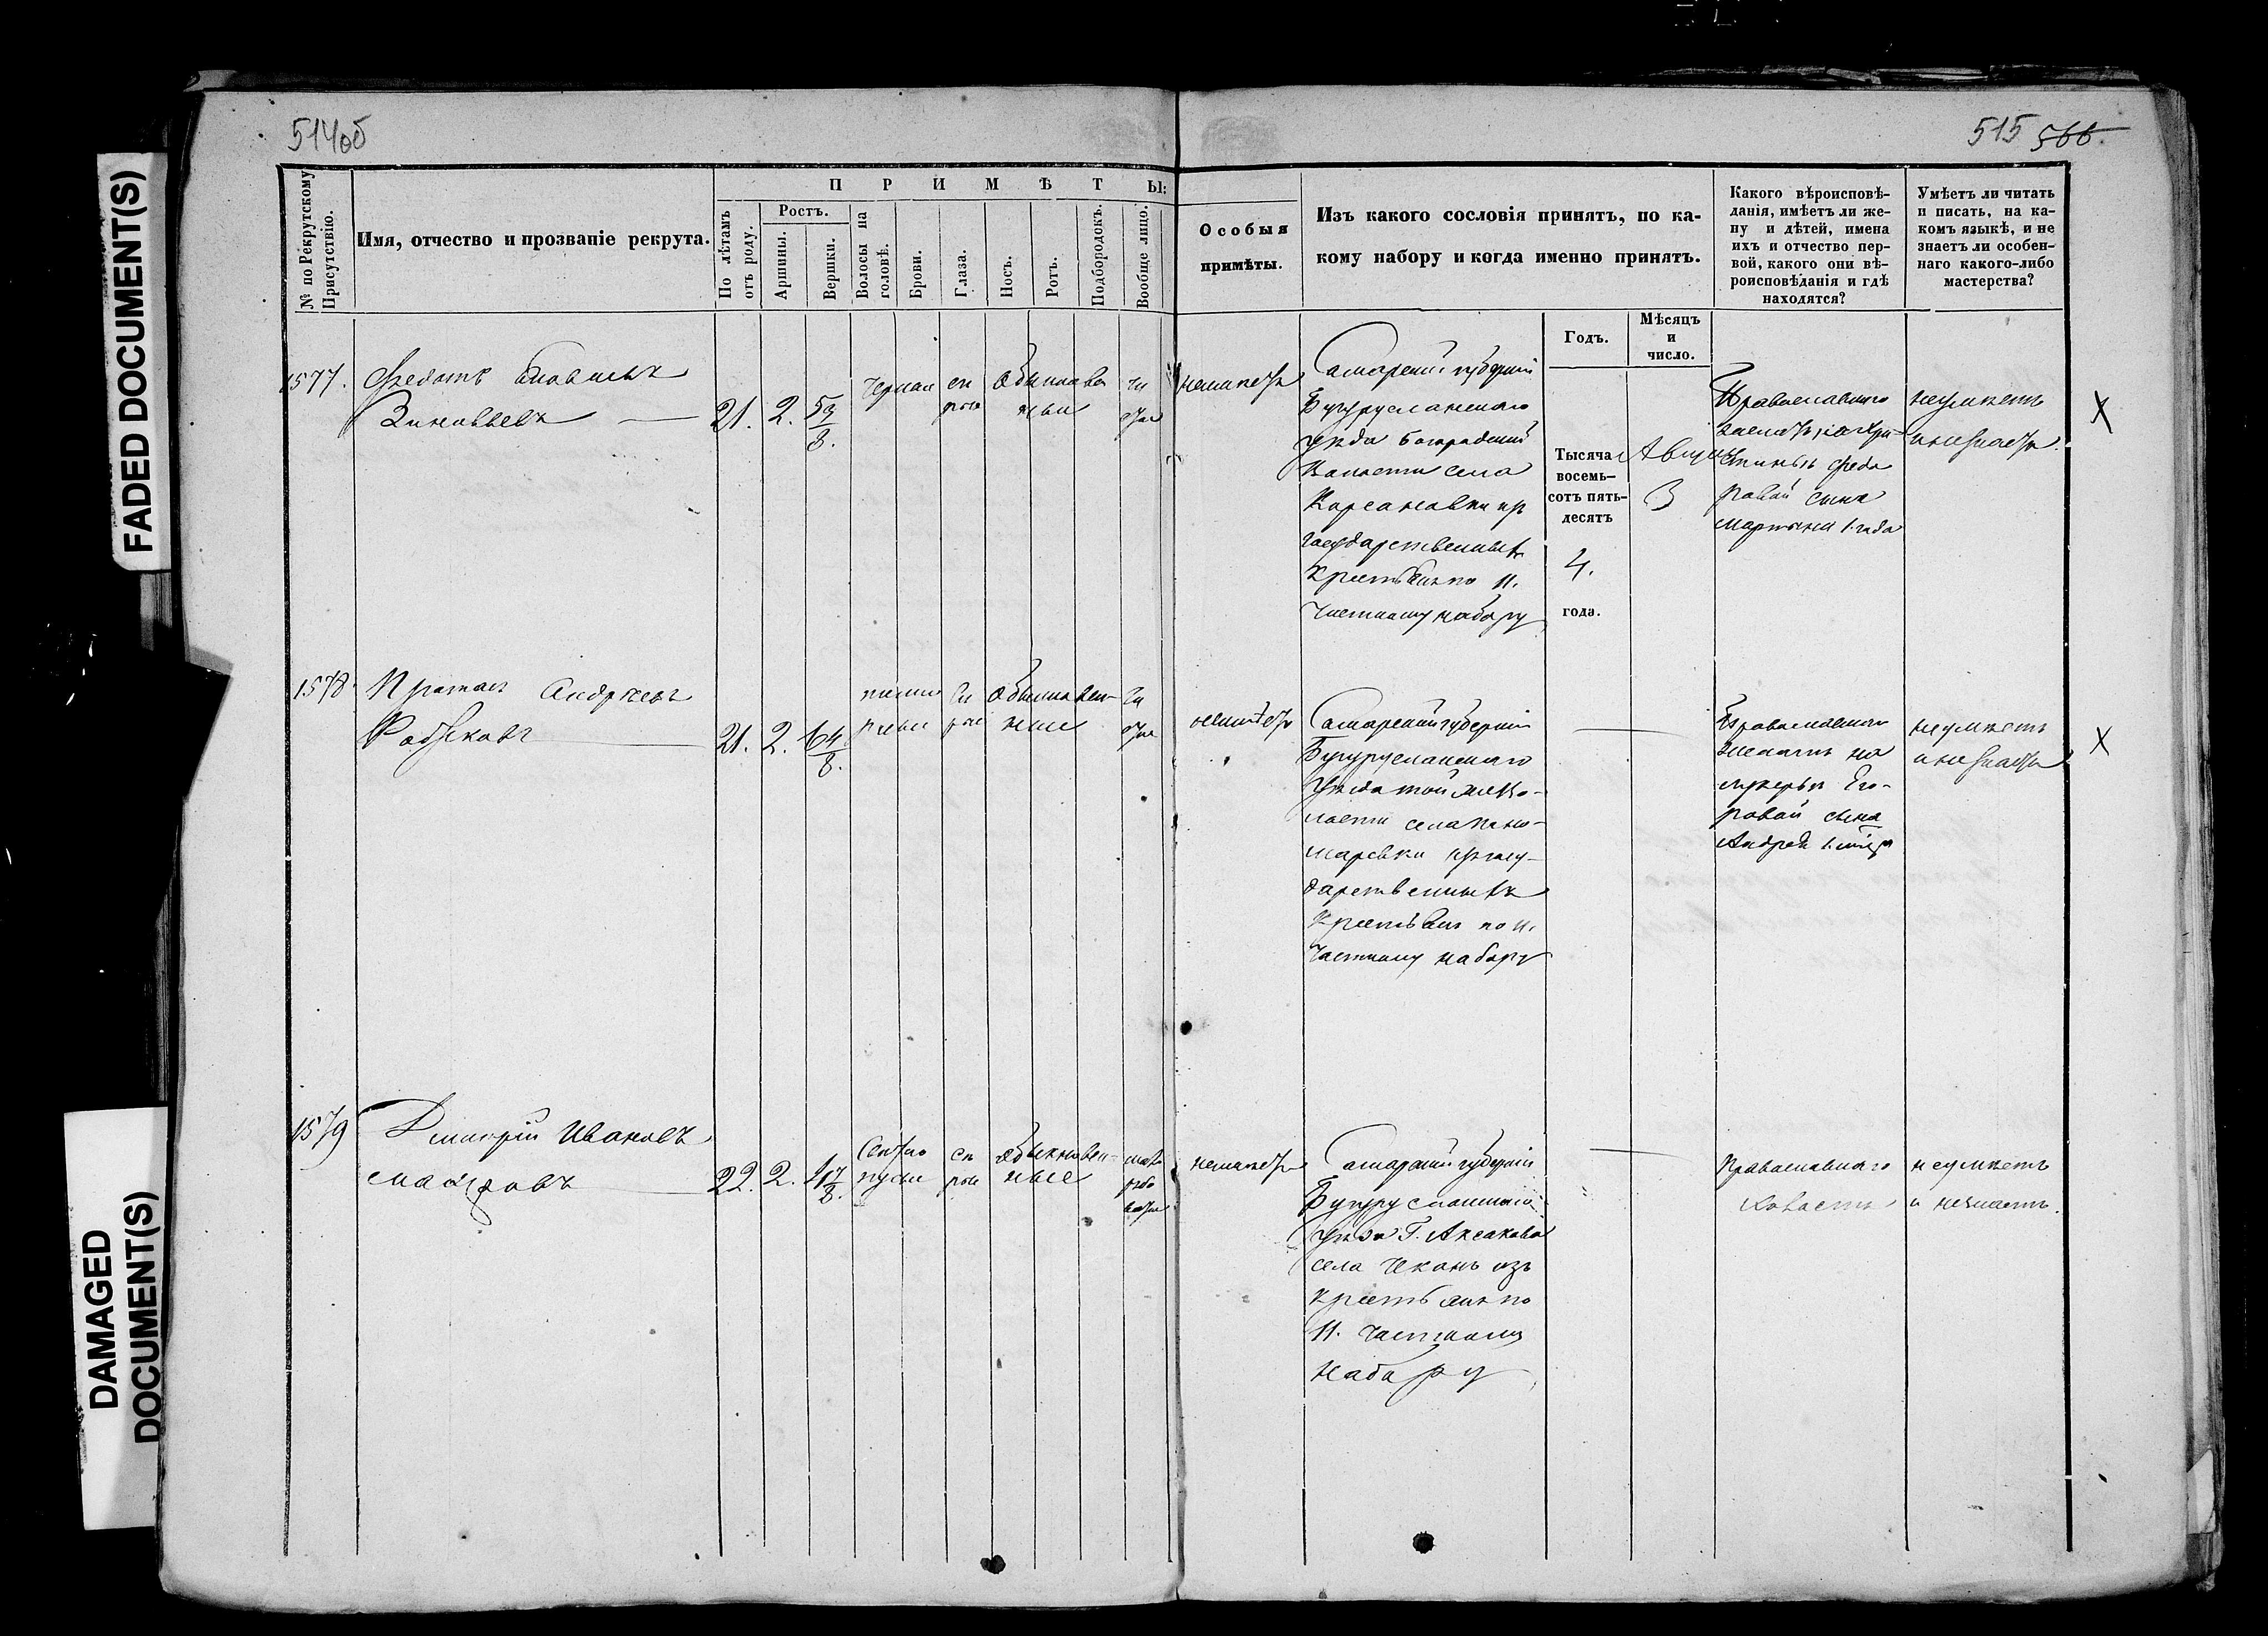 514об
515 566.
FADED DOCUMENT(S)
DAMAGED
DOCUMENT(S)
№ по Рекрутскому
Присутствію.
Имя, отчество и прозваніе рекрута.
ПРИМѢТЫ:
По лѣтамъ
отъ роду.
Ростъ.
Аршины.
Вершки.
Волосы на
головѣ.
Брови.
Глаза.
Носъ.
Ротъ.
Подбородокъ.
Вообще лицо.
Особыя
примѣты.
Изъ какого сословія принятъ, по ка-
кому набору и когда именно принятъ.
Какого вѣроисповѣ-
данія, имѣетъ ли же-
ну и дѣтей, имена
ихъ и отчество пер-
вой, какого они вѣ-
роисповѣданія и гдѣ
находятся?
Умѣетъ ли читать
и писать, на ка-
комъ языкѣ, и не
знаетъ ли особен-
наго какого-либо
мастерства?
Годъ.
Мѣсяцъ
и
число.
1577.
Федотъ
Зиновьевъ
21. 2. 5 3/8.
сѣ
рые
чи
стое
неимѣетъ
Самарской губерніи
Бугурусланскаго
уѣзда
Волости села
Корсановки изъ
государственныхъ
крестьянъ по 11.
Частному набору
Тысяча
восемь-
сотъ пять-
десятъ
4.
года.
Августъ
3
Православнаго
женатъ, на Хри-
стинье Федо
ровой сынъ
Мартынъ 1. года
неумѣетъ
и незнаетъ.
X
1578.
Андреевъ
21. 2. 6 4/8.
сѣ
рые
обыкновен-
ные
чи
стое
неимѣетъ
Самарской губерніи
Бугурусланскаго
уѣзда той же Во-
лости села Поно-
маревки изъ госу-
дарственныхъ
Крестьянъ по 11.
Частному набору
Православнаго
женатъ на
лукерьѣ Его-
ровой сынъ
Андрей
неумѣетъ
и незнаетъ
X
1579
Дмитрій Ивановъ
22. 2. 4 7/8.
Свѣтло
русые
сѣ
рые
обыкновен-
ные
неимѣетъ
Самарской губерніи
Бугурусланскаго
уѣзда Г. Аксакова
села Чеканъ изъ
Крестьянъ по
11. Частному
набору
Православнаго
холостъ
неумѣетъ
и незнаетъ.